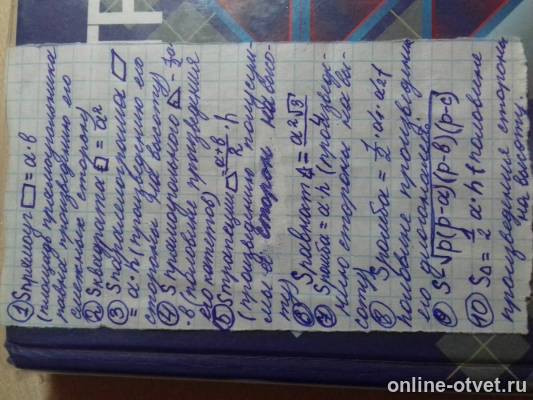 ① Sпрямоуг ▭ = a · b
(площадь прямоугольника
равна произведению его
смежных сторон)
② Sквадрата □ = a²
③ Sпараллелограмма ▱
= a · h (произведению его
стороны на высоту)
④ S прямоугольного △ = ½ a ·
· b (половине произведения
его катетов)
⑤ Sтрапеции = a+b/2 · h
(произведению полусум-
мы сторон на высо-
ту)
⑥ Sравнст △ = a²√3/4
⑦ Sромба = a · h (произведе-
нию стороны на вы-
соту)
⑧ Sромба = ½ d₁ · d₂ (
половине произведения
его диагоналей)
⑨ S = √p(p-a)(p-b)(p-c)
⑩ S△ = ½ a · h (половине
произведения стороны
на высоту.
online-otvet.ru